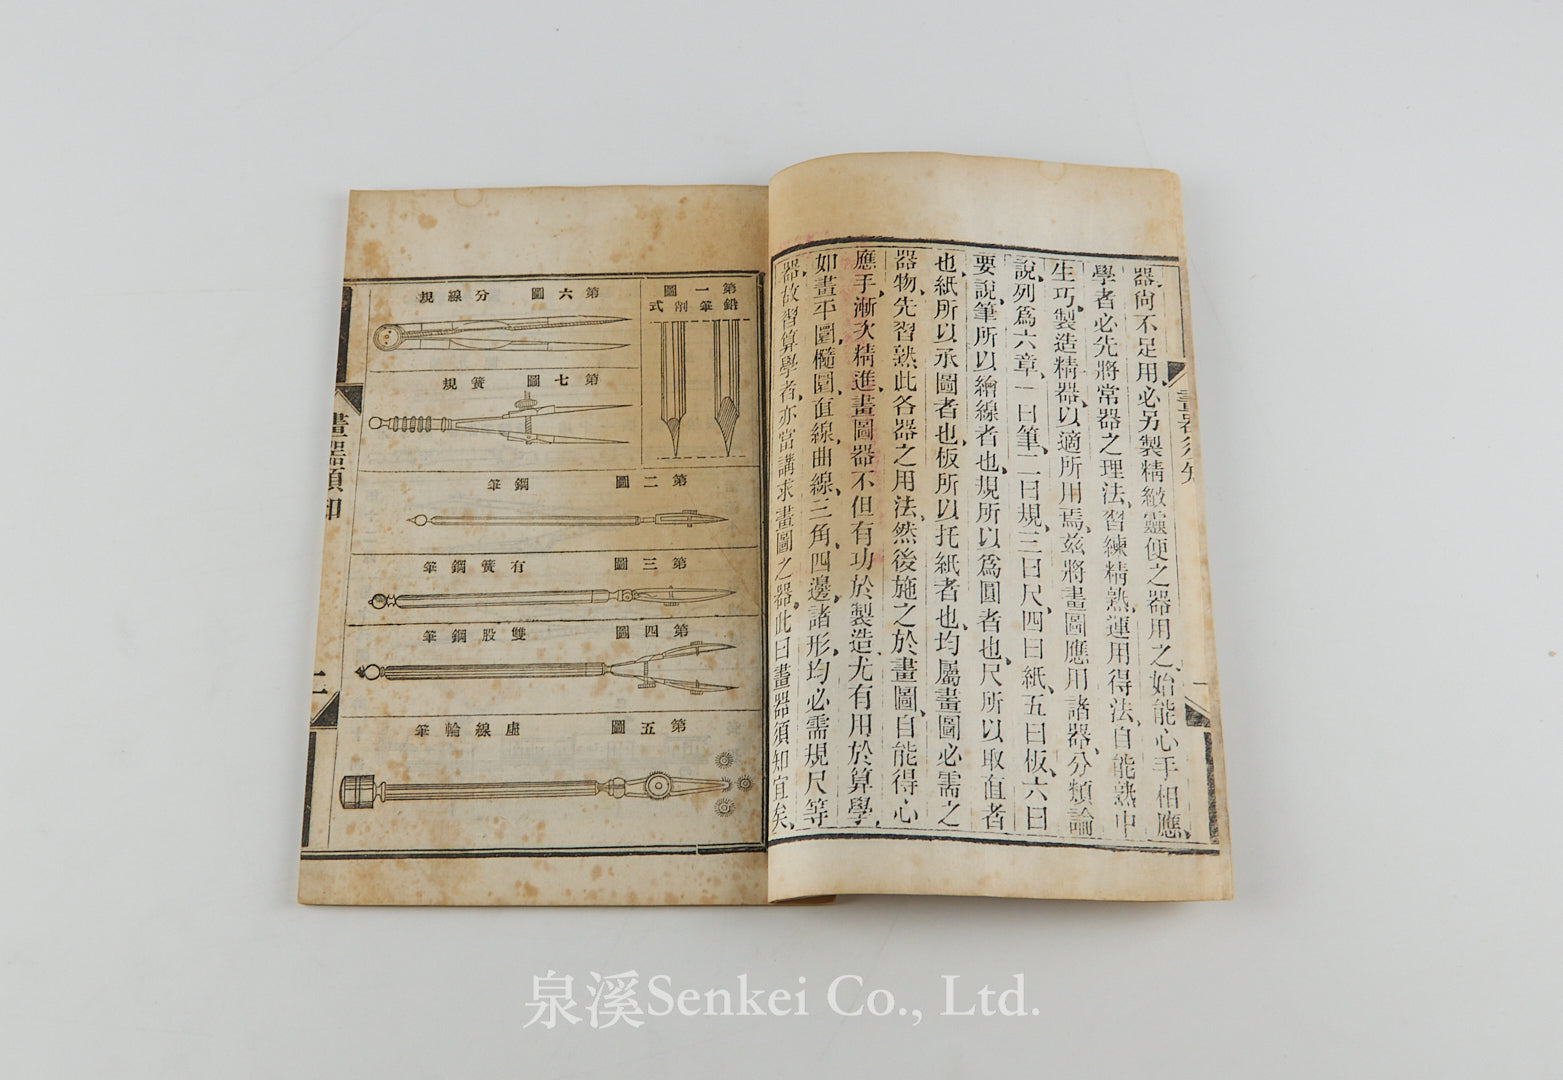 器尙不足用必另製精緻靈便之器用之、始能心手相應、
學者必先將常器之理法、習練精熟、運用得法、自能熟中
生巧、製造精器、以適所用焉、茲將畫圖應用諸器、分類論
說、列爲六章、一曰筆、二曰規、三曰尺、四曰紙、五曰板、六曰
要說、筆所以繪線者也、規所以爲圓者也、尺所以取直者
也、紙所以承圖者也、板所以托紙者也、均屬畫圖必需之
器物、先習熟此各器之用法、然後施之於畫圖、自能得心
應手、漸次精進、畫圖器不但有功於製造、尤有用於算學、
如畫平圓、橢圓、直線、曲線、三角、四邊、諸形、均必需規尺等
器、故習算學者、亦當講求畫圖之器、此曰畫器須知宜矣、
畫器須知
一
第一圖
鉛筆削式
第六圖 分線規
第七圖 簧規
第二圖 鋼筆
第三圖 有簧鋼筆
第四圖 雙股鋼筆
第五圖 虛線輪筆
畫器須知
二
泉溪Senkei Co., Ltd.